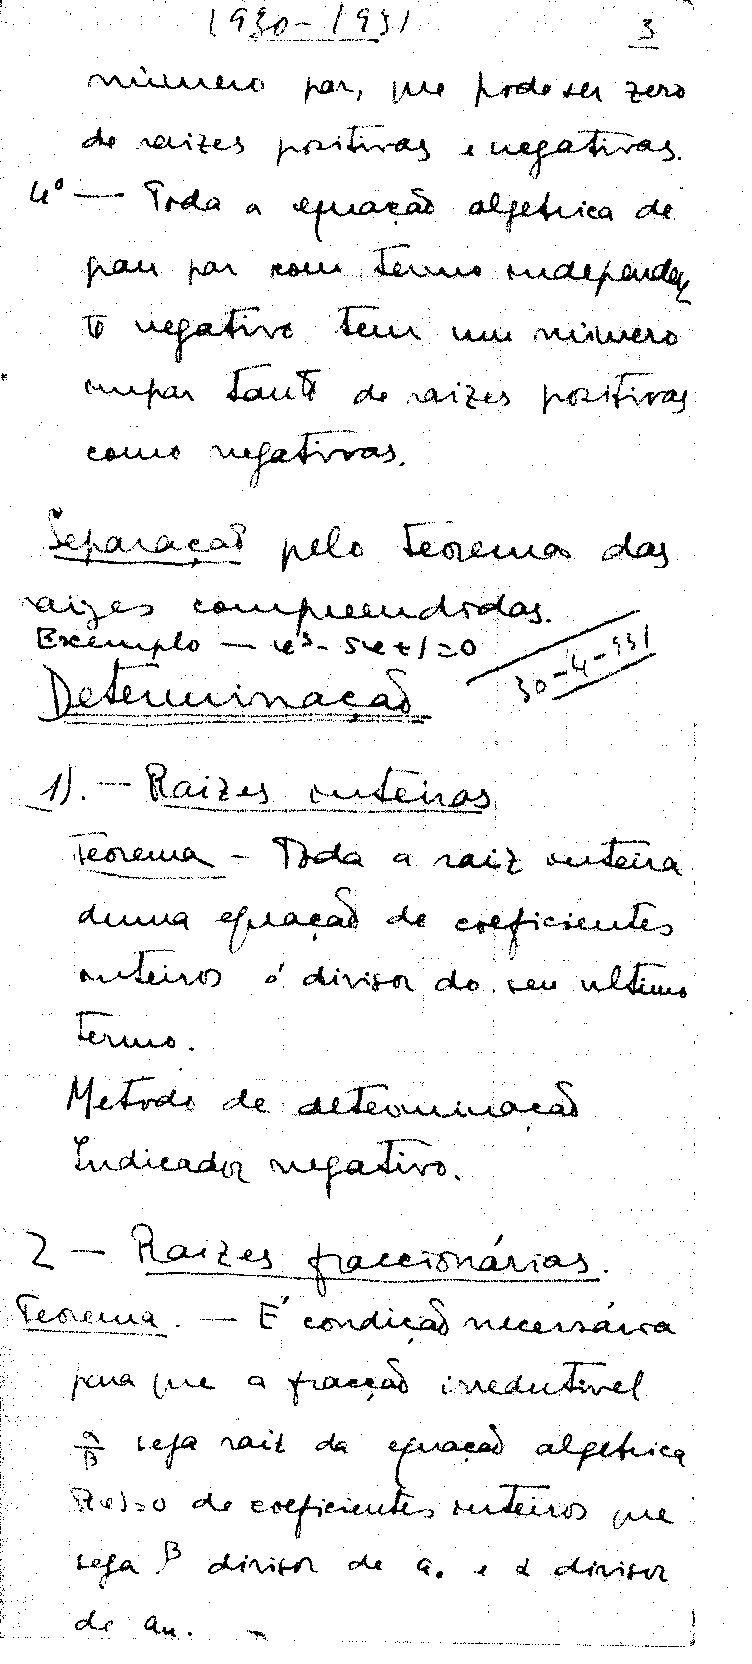 1930-1931 3
número par, que pode ser zero
de raizes positivas e negativas.
4º — Toda a equação algebrica de
grau par com termo independen
te negativo tem um número
impar tanto de raizes positivas
como negativas.
Separação pelo teorema das
raizes compreendidas.
Exemplo — x³-5x+1=0
30-4-931
Determinação
1). — Raizes inteiras
Teorema — Toda a raiz inteira
duma equação de coeficientes
inteiros é divisor do seu ultimo
termo.
Metodo de determinação
Indicador negativo.
2 — Raizes fraccionárias.
Teorema. — É condição necessária
para que a fracção irredutivel
α/β seja raiz da equação algebrica
de coeficientes inteiros que
seja β divisor de a₀ e α divisor
de aₙ. —